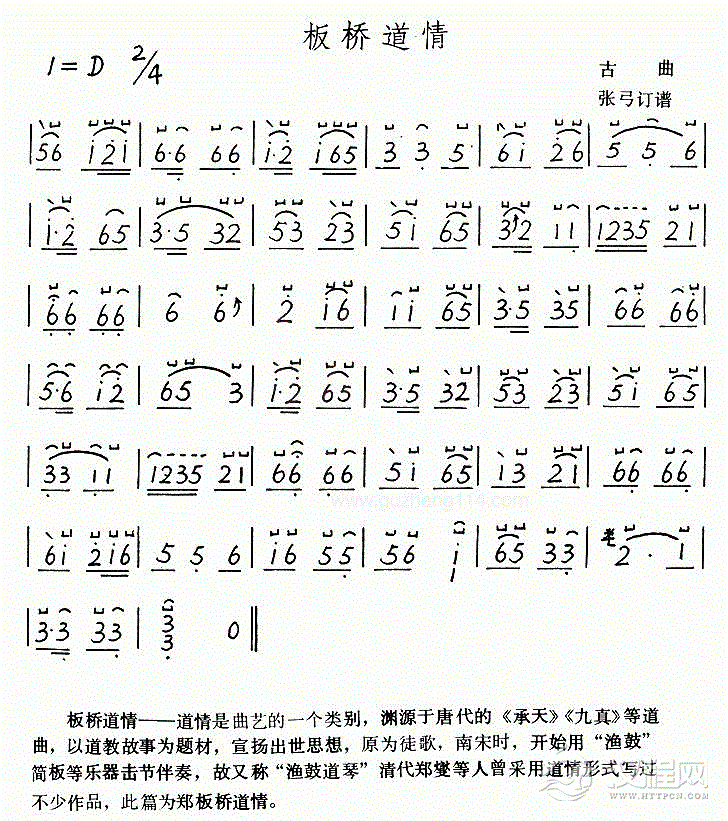 板桥道情
1=D 2/4
古 曲
张弓订谱
| 56 i2i | 6·6 66 | i·2 i65 | 3 3 5 | 6i 26 | 5 5 6 |
| i·2 65 | 3·5 32 | 53 23 | 5i 65 | 32 11 | 1235 21 |
| 66 66 | 6 6 | 2 i6 | ii 65 | 3·5 35 | 66 66 |
| 5·6 i2 | 65 3 | i·2 65 | 3·5 32 | 53 23 | 5i 65 |
| 33 11 | 1235 21 | 66 66 | 5i 65 | i3 2i | 66 66 |
| 6i 2i6 | 5 5 6 | i6 55 | 56 i 1 | 65 33 | 2 · 1 |
| 3·3 33 | 3 3 0 ‖
www.guzheng114.com
板桥道情——道情是曲艺的一个类别，渊源于唐代的《承天》《九真》等道
曲，以道教故事为题材，宣扬出世思想，原为徒歌，南宋时，开始用“渔鼓”
简板等乐器击节伴奏，故又称“渔鼓道琴”清代郑燮等人曾采用道情形式写过
不少作品，此篇为郑板桥道情。
汉程网
WWW.HTTPCN.COM